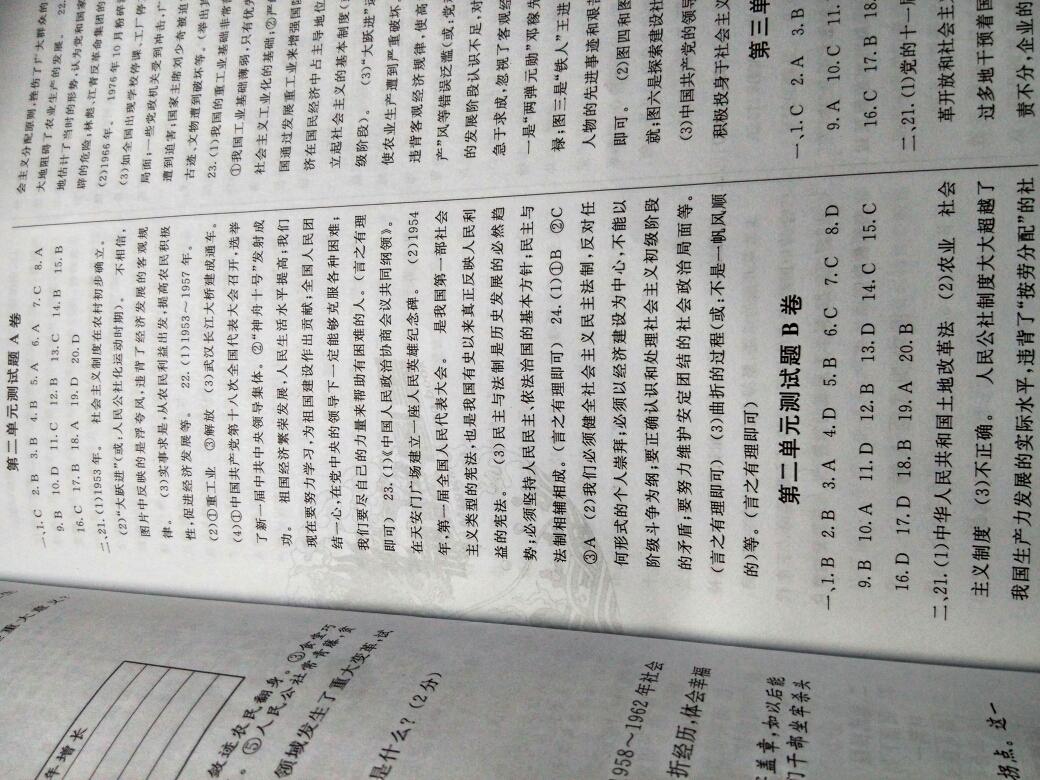 第二单元测试题 A 卷
一、1. C 2. B 3. B 4. B 5. A 6. A 7. C 8. A
9. B 10. D 11. C 12. B 13. C 14. B 15. B
16. C 17. B 18. A 19. D 20. D
二、21. (1)1953 年。 社会主义制度在农村初步确立。
(2)“大跃进”(或:人民公社化运动时期)。 不相信,
图片中反映的是浮夸风,违背了经济发展的客观规
律。 (3)实事求是;从农民利益出发;提高农民积极
性,促进经济发展等。 22. (1)1953～1957 年。
(2)①重工业 ③解放 (3)武汉长江大桥建成通车。
(4)①中国共产党第十八次全国代表大会召开,选举
了新一届中共中央领导集体。②“神舟十号”发射成
功。 祖国经济繁荣发展,人民生活水平提高;我们
现在要努力学习,为祖国建设作出贡献;全国人民团
结一心,在党中央的领导下一定能够克服各种困难;
我们要尽自己的力量来帮助有困难的人。(言之有理
即可) 23. (1)《中国人民政治协商会议共同纲领》。
在天安门广场建立一座人民英雄纪念碑。 (2)1954
年,第一届全国人民代表大会。 是我国第一部社会
主义类型的宪法,也是我国有史以来真正反映人民利
益的宪法。 (3)民主与法制是历史发展的必然趋
势;必须坚持人民民主、依法治国的基本方针;民主与
法制相辅相成。(言之有理即可) 24. (1)①B ②C
③A (2)我们必须健全社会主义民主法制,反对任
何形式的个人崇拜;必须以经济建设为中心,不能以
阶级斗争为纲;要正确认识和处理社会主义初级阶段
的矛盾;要努力维护安定团结的社会政治局面等。
(言之有理即可) (3)曲折的过程(或:不是一帆风顺
的)等。(言之有理即可)
第二单元测试题 B 卷
一、1. B 2. B 3. A 4. D 5. B 6. C 7. C 8. D
9. B 10. A 11. D 12. B 13. D 14. C 15. C
16. D 17. D 18. B 19. A 20. B
二、21. (1)中华人民共和国土地改革法 (2)农业 社会
主义制度 (3)不正确。 人民公社制度大大超越了
我国生产力发展的实际水平,违背了“按劳分配”的社
会主义分配原则,挫伤了广大群众的
大地阻碍了农业生产的发展。 22.
地估计了当时的形势,认为党和国家
辟的危险;林彪、江青反革命集团的
(2)1966 年。 1976 年 10 月粉碎
(3)如全国出现学校停课、工厂停
局面;一些党政机关受到冲击,广
遭到迫害;国家主席刘少奇被迫
古迹、文物遭到破坏等。(举出其
23. (1)我国的重工业基础非常
①我国工业基础薄弱,只有优先
社会主义工业化的基础;②
国通过发展重工业来增强国
济在国民经济中占主导地位
立起社会主义的基本制度(
级阶段)。 (3)“大跃进”运
使农业生产遭到严重破坏,
违背客观经济规律,使高
产”风等错误泛滥(或:党
的发展阶段认识不足,对
急于求成,忽视了客观经
一是“两弹元勋”邓稼先
禄;图三是“铁人”王进
人物的先进事迹和艰苦
即可。 (2)图四和图
就;图六是探索建设社
(3)中国共产党的领导
积极投身于社会主义
第三单
一、1. C 2. A 3. B
9. A 10. C 11.
16. C 17. B 18.
二、21. (1)党的十一届
革开放和社会主
过多地干预着国
责不分,企业的
年增长
农民翻身。
⑤人民公社
领域发生了重大变革,
是什么？(2分)
1958～1962 年社会
折经历,体会幸福
盖章,如以后能
干部坐牢杀头
拐点。这一